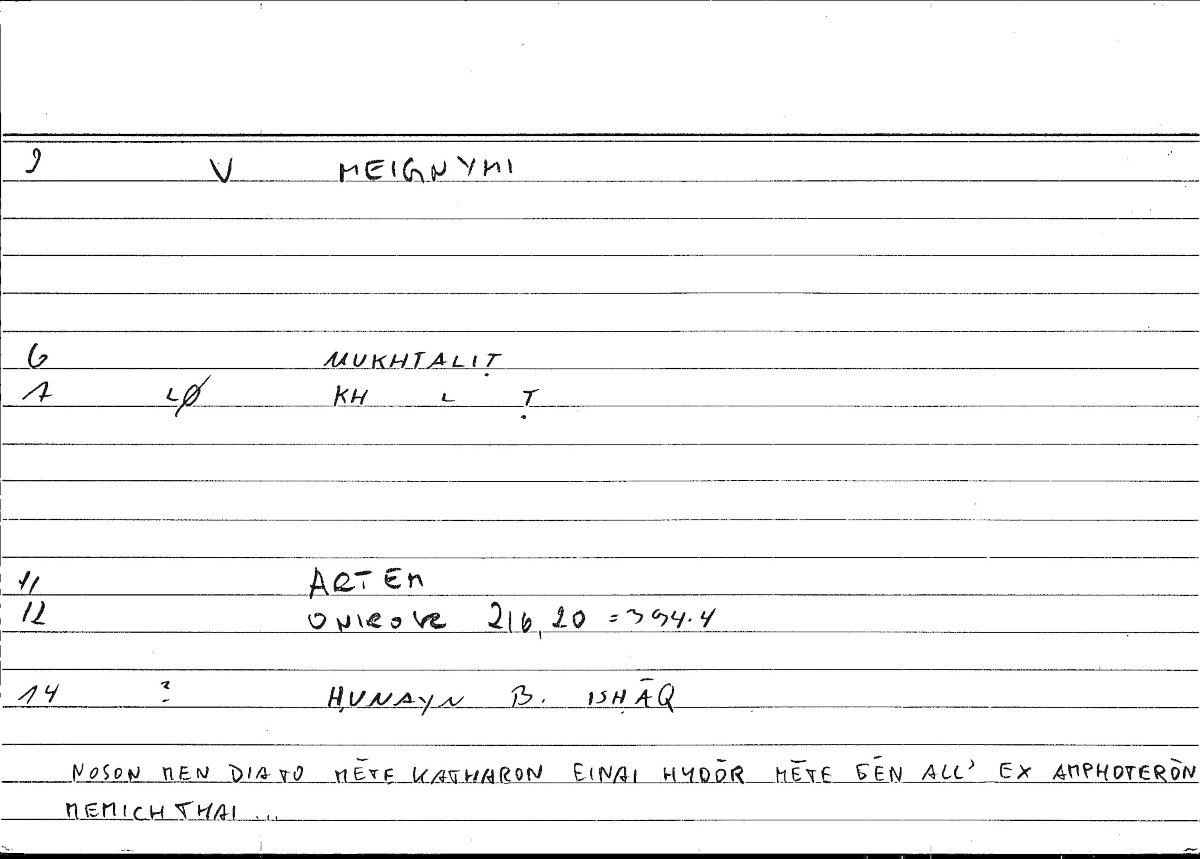 9 V MEIGNYMI
6 MUKHTALIṬ
7 LØ KH L Ṭ
11 ARTEM
12 ONIROKR 216,20 =394.4
14 ? ḤUNAYN B. ISḤĀQ
NOSON MEN DIA TO MĒTE KATHARON EINAI HYDŌR MĒTE GĒN ALL' EX AMPHOTERŌN
MEMICHTHAI ...